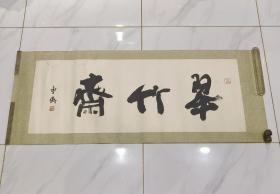 翠竹齋